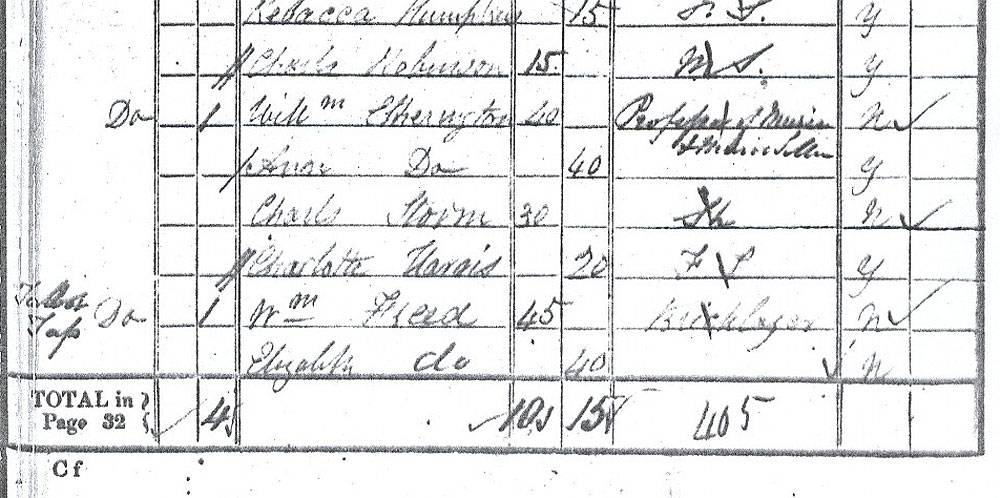 Rebacca Humphrys 15 F. S. y
Charls Robinson 15 M S. y
Do 1 Willm Etherington 40 Professor of Music N
& Music Seller
Ann Do 40 y
Charls Storm 30 N
Charlotte Harris 20 F S y
Talbot
Tap Do 1 Wm Freed 45 Bricklayer N
Elizabeth do 40 N
TOTAL in
Page 32 4 10 15 405
Cf